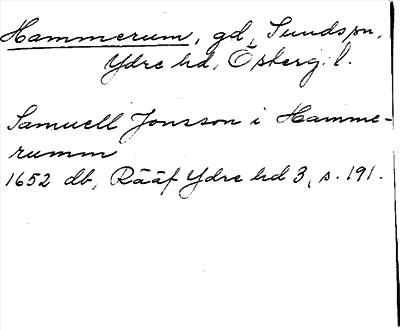 Hammerum, gd, Sunds sn,
Ydre hd, Österg. l.
Samuell Jonsson i Hamme-
rumm
1652 db, Rääf Ydre hd 3, s. 191.